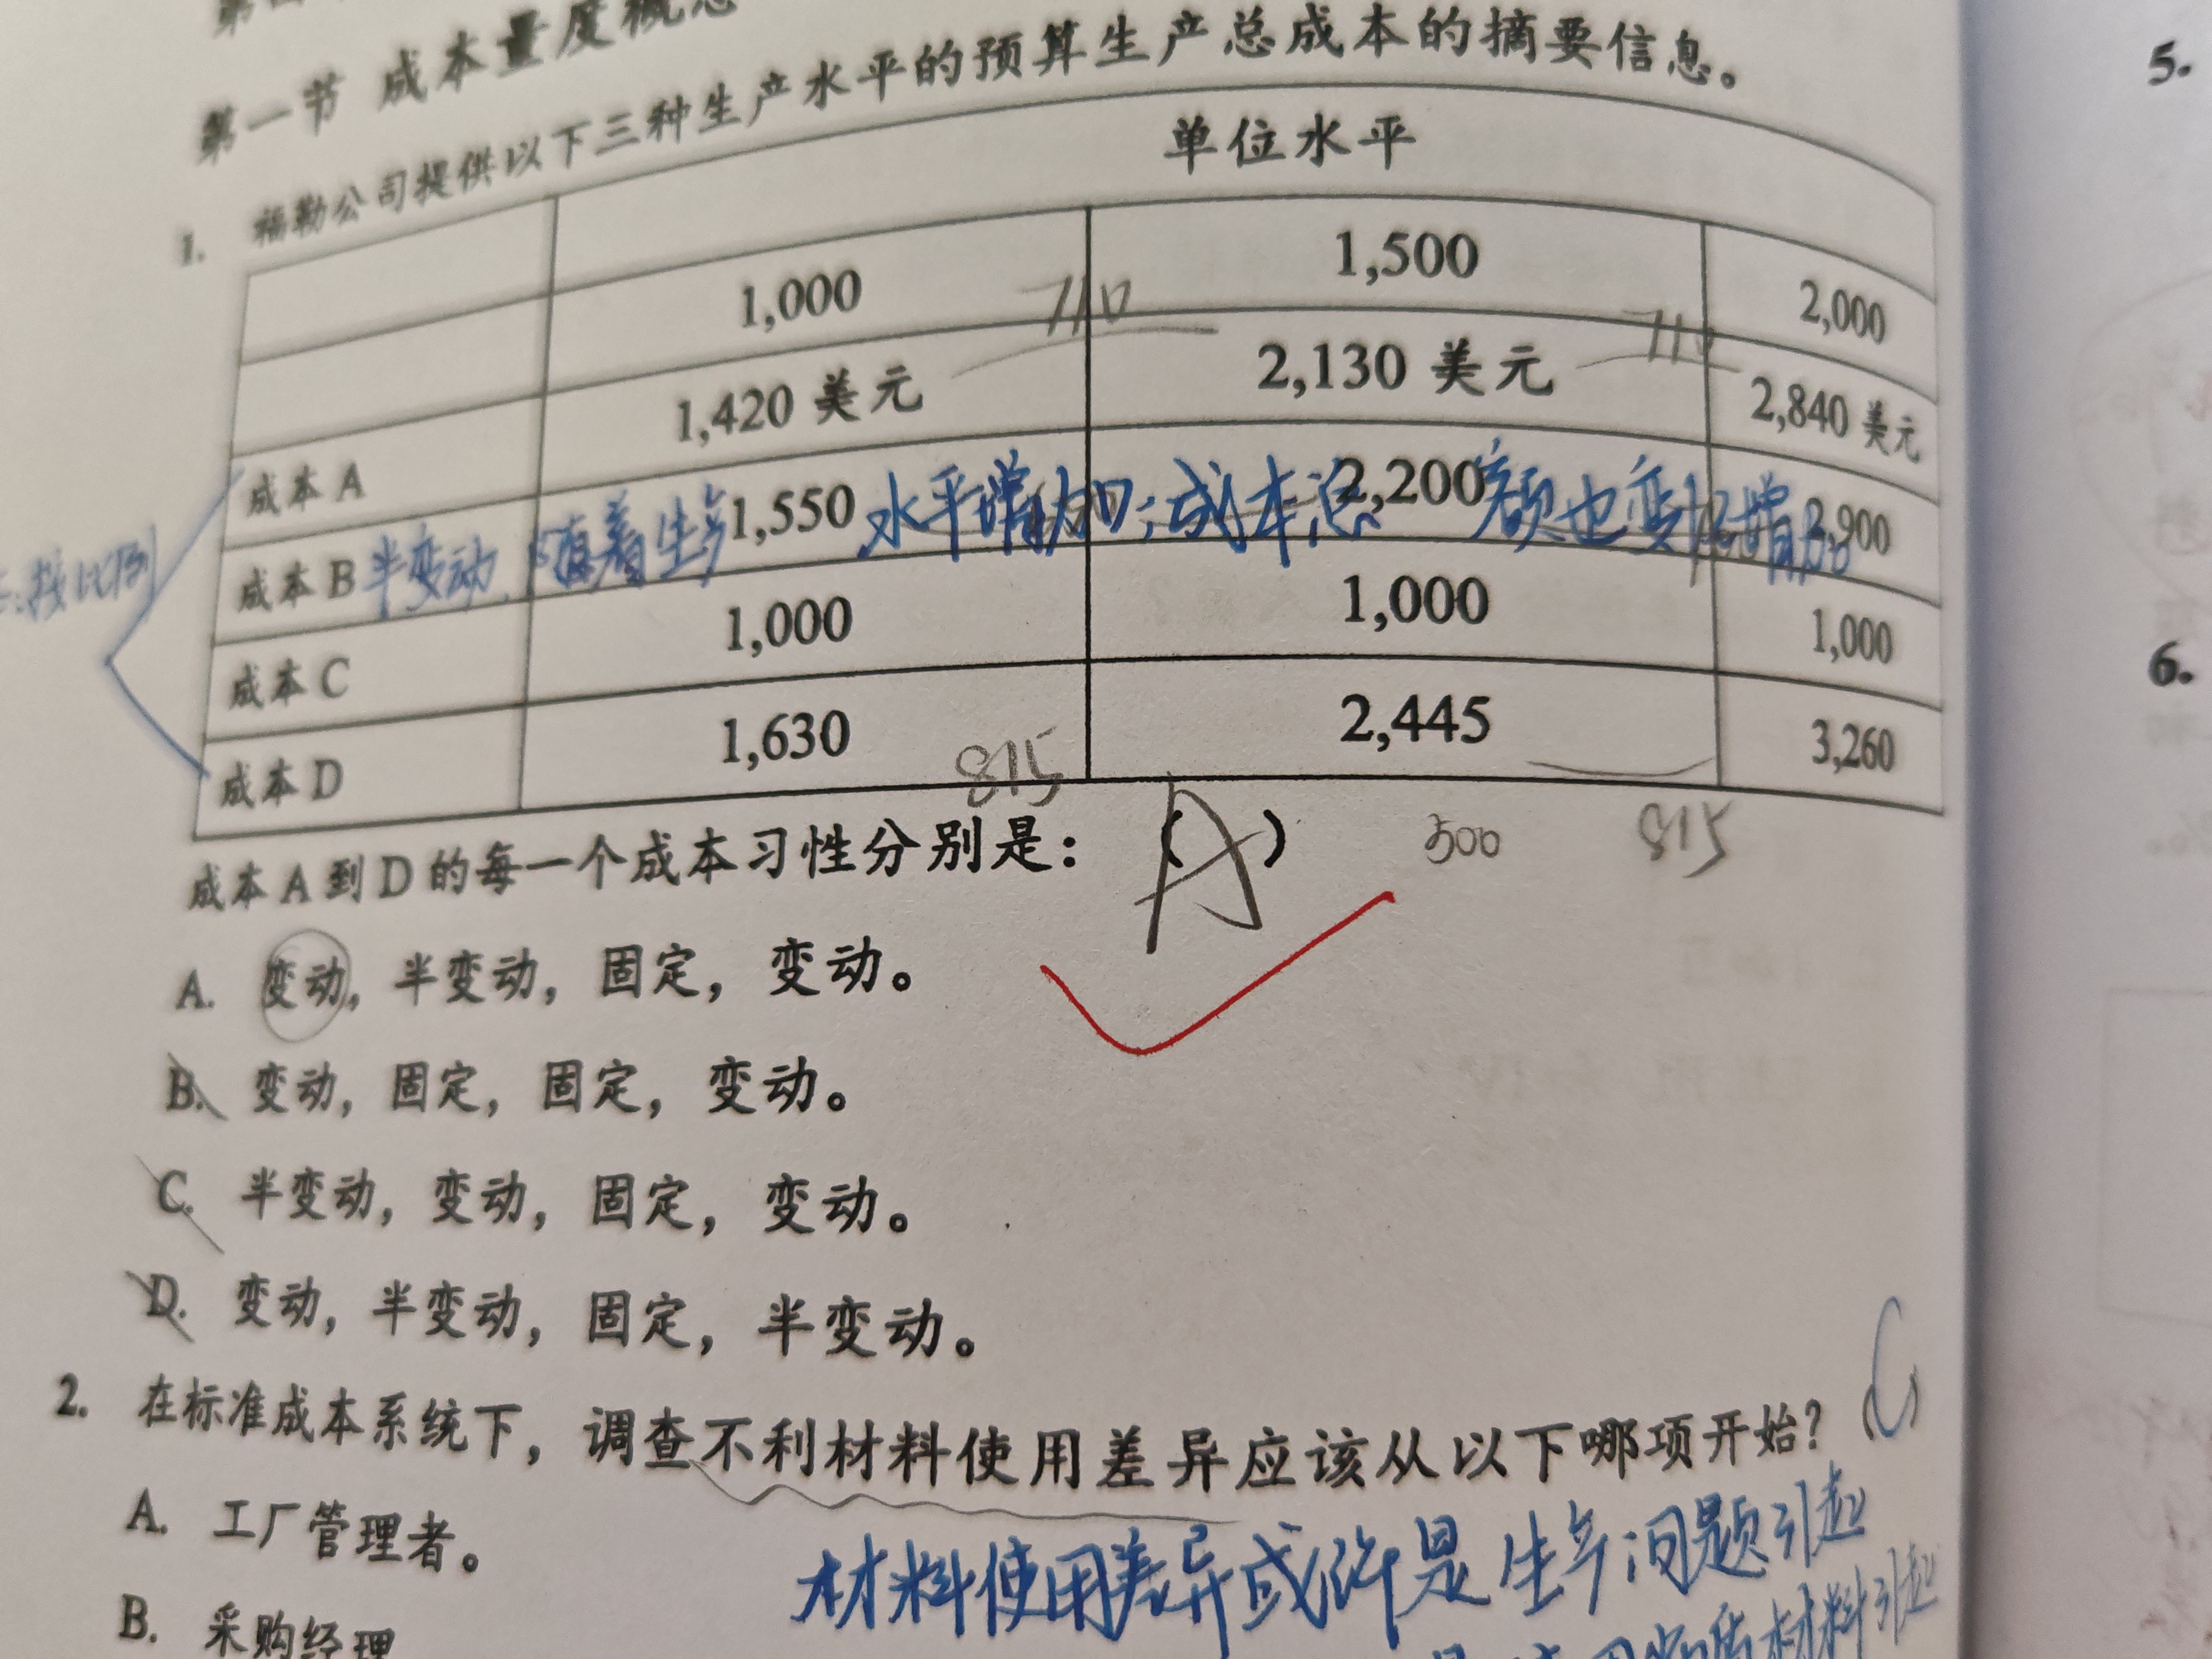 第一节 成本量度概念
1. 福勒公司提供以下三种生产水平的预算生产总成本的摘要信息。
单位水平
1,000 1,500 2,000
710 710
1,420 美元 2,130 美元 2,840 美元
成本 A
1,550 2,200 2,900
成本 B 半变动. 随着生产水平增加;成本总额也变化增加
按比例
1,000 1,000 1,000
成本 C
1,630 2,445 3,260
成本 D
815 500 815
成本 A 到 D 的每一个成本习性分别是: (A)
A. 变动, 半变动, 固定, 变动。
B. 变动, 固定, 固定, 变动。
C. 半变动, 变动, 固定, 变动。
D. 变动, 半变动, 固定, 半变动。
2. 在标准成本系统下, 调查不利材料使用差异应该从以下哪项开始? (C)
A. 工厂管理者。
材料使用差异或许是生产问题引起
B. 采购经理
材料引起
5.
6.